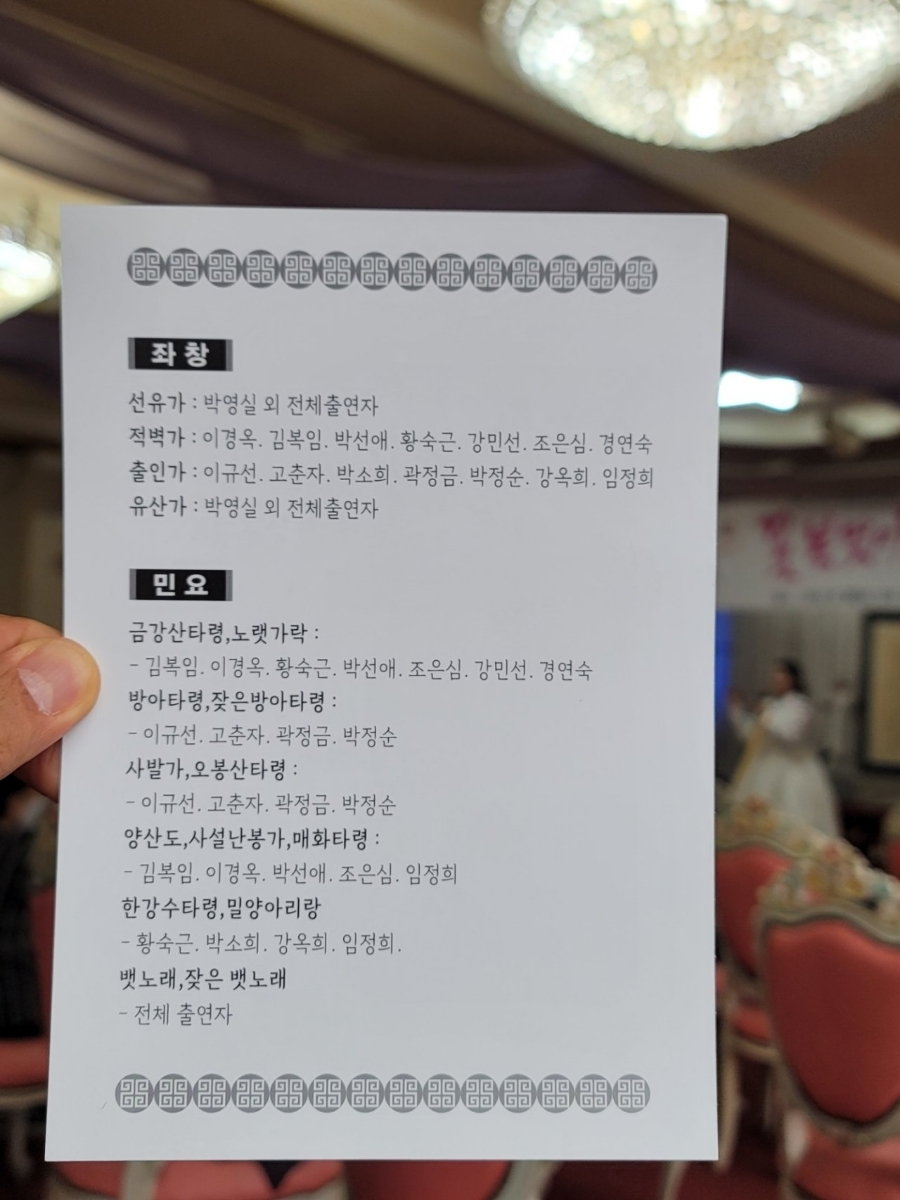 좌 창
선유가 : 박영실 외 전체출연자
적벽가 : 이경옥. 김복임. 박선애. 황숙근. 강민선. 조은심. 경연숙
출인가 : 이규선. 고춘자. 박소희. 곽정금. 박정순. 강옥희. 임정희
유산가 : 박영실 외 전체출연자
민 요
금강산타령,노랫가락 :
- 김복임. 이경옥. 황숙근. 박선애. 조은심. 강민선. 경연숙
방아타령,잦은방아타령 :
- 이규선. 고춘자. 곽정금. 박정순
사발가,오봉산타령 :
- 이규선. 고춘자. 곽정금. 박정순
양산도,사설난봉가,매화타령 :
- 김복임. 이경옥. 박선애. 조은심. 임정희
한강수타령,밀양아리랑
- 황숙근. 박소희. 강옥희. 임정희.
뱃노래,잦은 뱃노래
- 전체 출연자